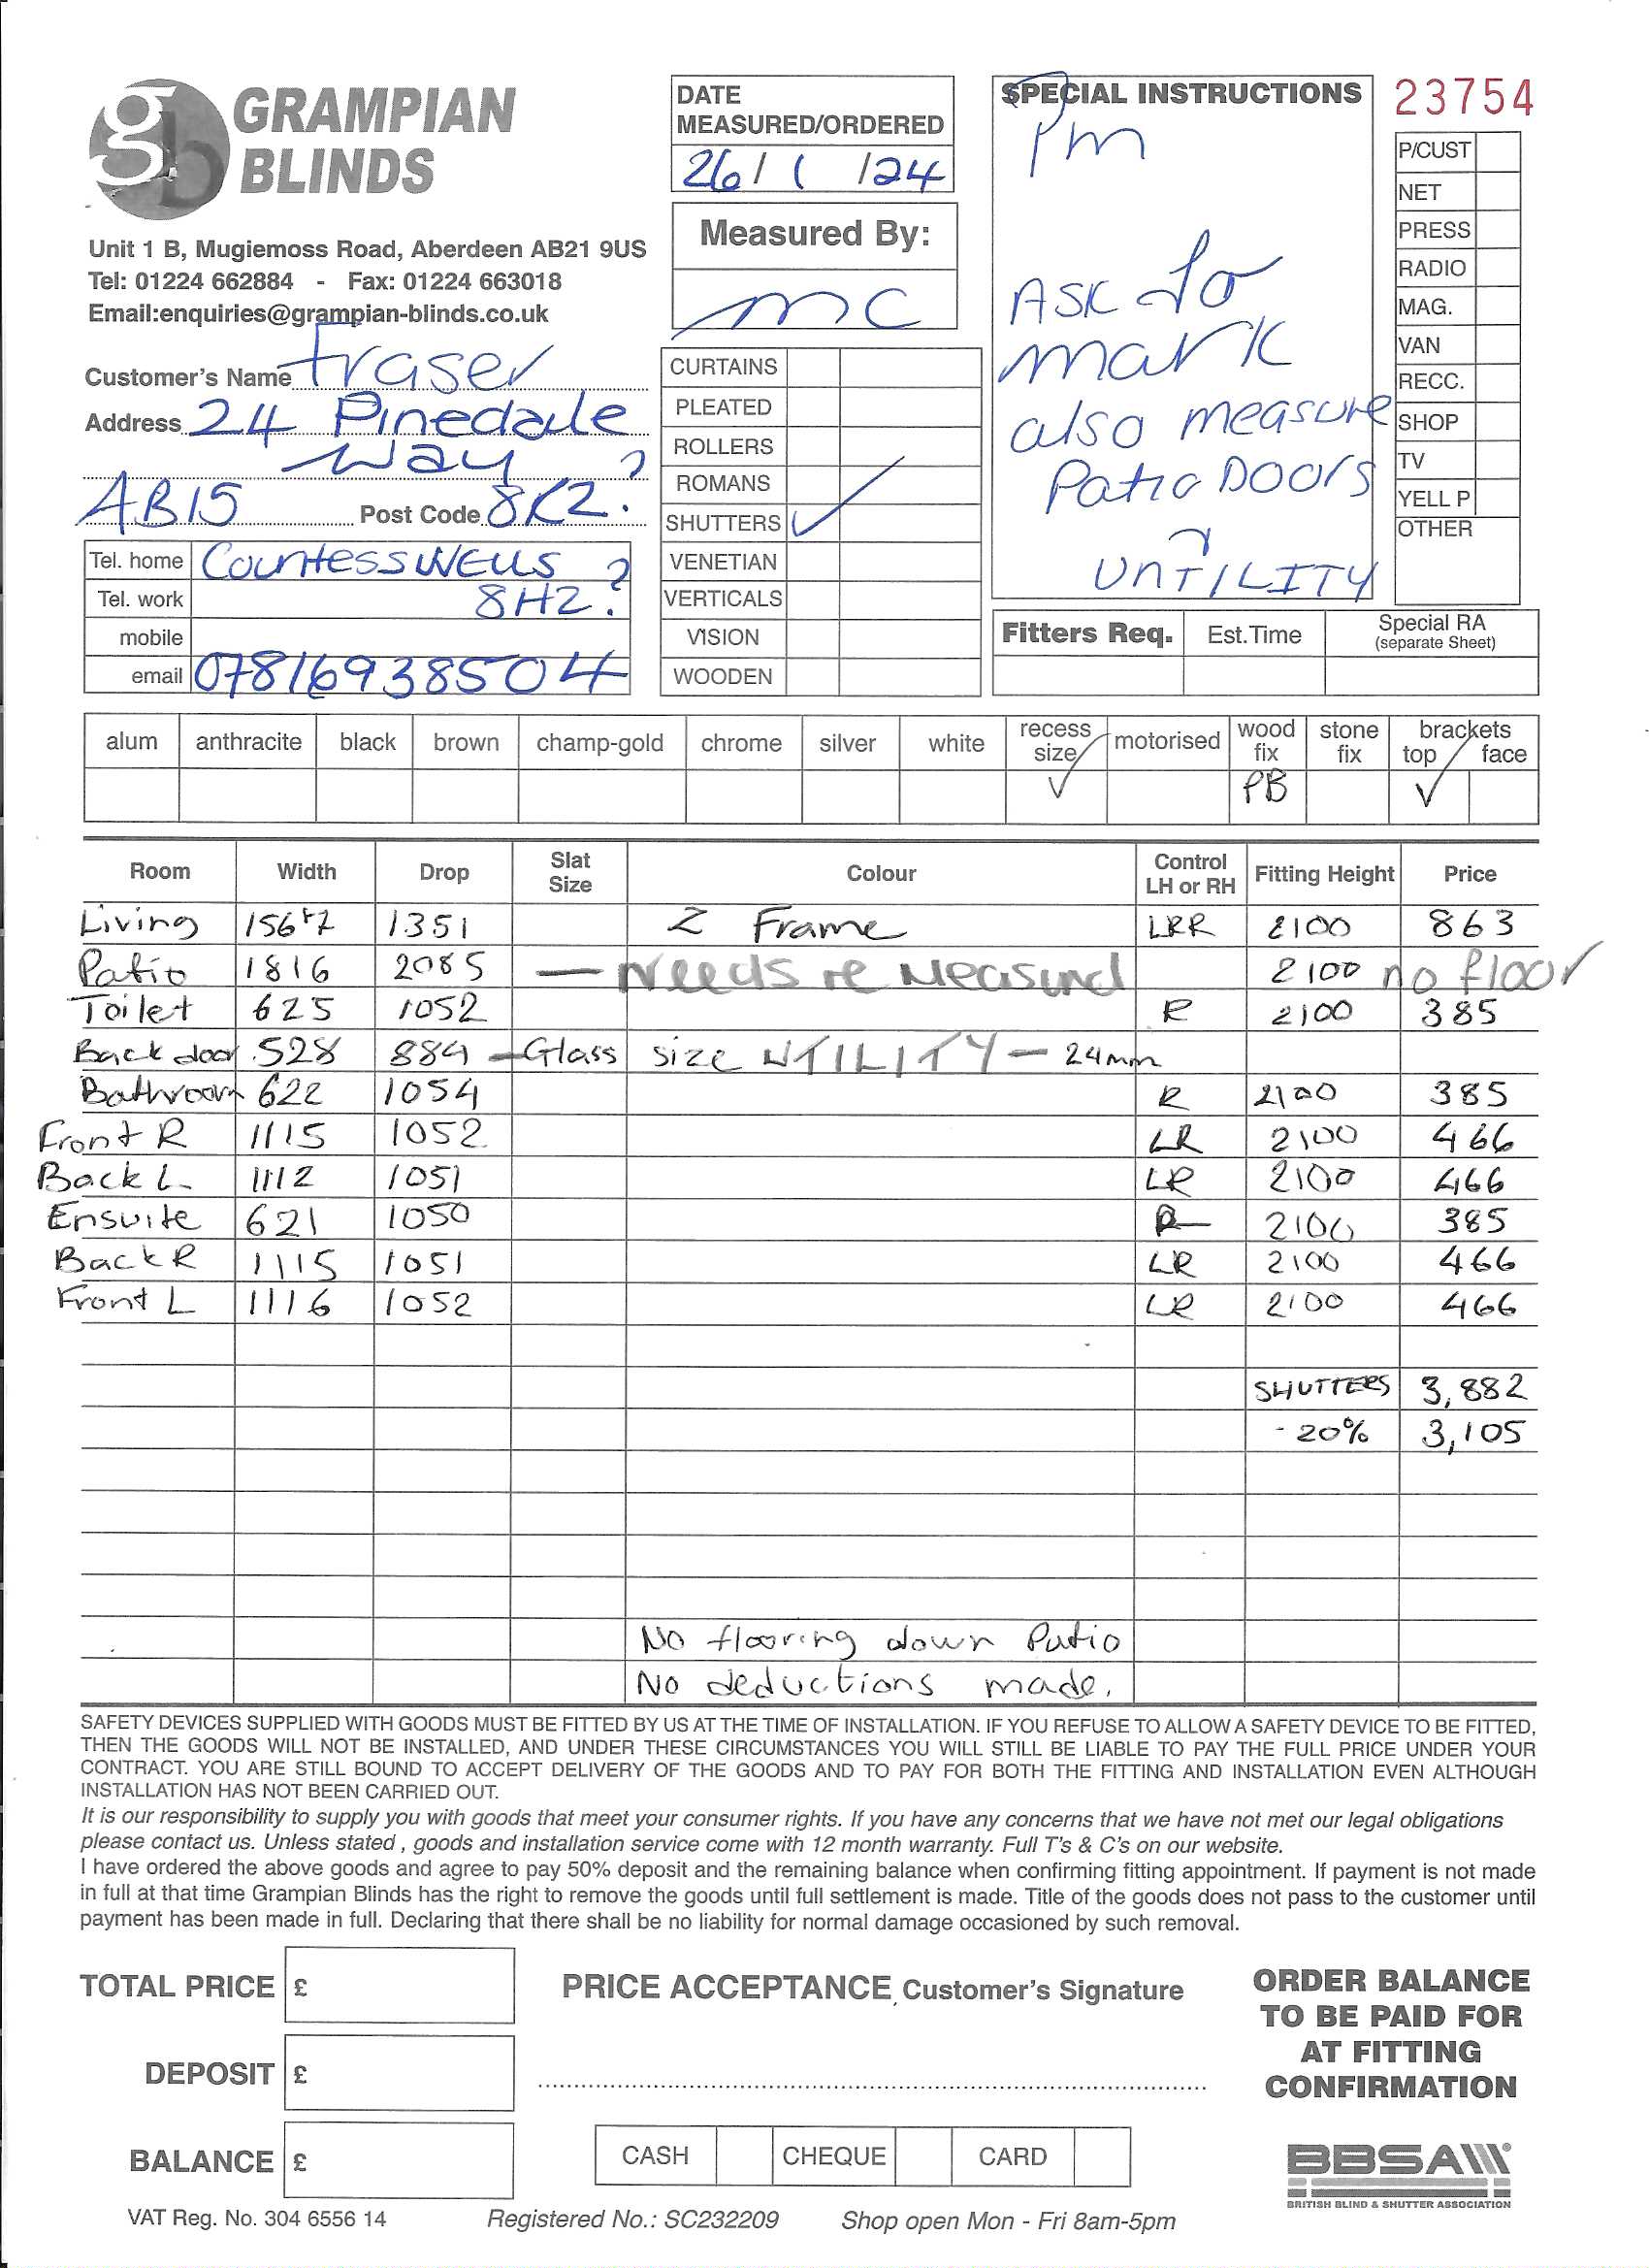 GRAMPIAN
BLINDS
Unit 1 B, Mugiemoss Road, Aberdeen AB21 9US
Tel: 01224 662884 - Fax: 01224 663018
Email:enquiries@grampian-blinds.co.uk
DATE
MEASURED/ORDERED
26/1/24
Measured By:
MC
SPECIAL INSTRUCTIONS
Pm
ASK for
mark
also measure
Patio Doors
UNTILITY
23754
P/CUST
NET
PRESS
RADIO
MAG.
VAN
RECC.
SHOP
TV
YELL P
OTHER
Customer's Name Fraser
Address 24 Pinedale
Way ?
AB15 Post Code 8K2.
Tel. home Countesswells ?
Tel. work 8HZ.
mobile
email 07816938504
CURTAINS
PLEATED
ROLLERS
ROMANS
SHUTTERS ✓
VENETIAN
VERTICALS
VISION
WOODEN
Fitters Req. Est.Time Special RA
(separate Sheet)
alum anthracite black brown champ-gold chrome silver white recess size motorised wood fix stone fix brackets top face
✓ PB ✓
Room Width Drop Slat Size Colour Control LH or RH Fitting Height Price
Living 1351 Z Frame LRR 2100 863
Patio 1816 2085 — Needs re Measured 2100 no floor
Toilet 625 1052 R 2100 385
Back door 528 884 — Glass size UTILITY — 24mm
Bathroom 622 1054 R 2100 385
Front R 1115 1052 LR 2100 466
Back L 1112 1051 LR 2100 466
Ensuite 621 1050 R 2100 385
Back R 1115 1051 LR 2100 466
Front L 1116 1052 LR 2100 466
SHUTTERS 3,882
- 20% 3,105
No flooring down Patio
No deductions made.
SAFETY DEVICES SUPPLIED WITH GOODS MUST BE FITTED BY US AT THE TIME OF INSTALLATION. IF YOU REFUSE TO ALLOW A SAFETY DEVICE TO BE FITTED,
THEN THE GOODS WILL NOT BE INSTALLED, AND UNDER THESE CIRCUMSTANCES YOU WILL STILL BE LIABLE TO PAY THE FULL PRICE UNDER YOUR
CONTRACT. YOU ARE STILL BOUND TO ACCEPT DELIVERY OF THE GOODS AND TO PAY FOR BOTH THE FITTING AND INSTALLATION EVEN ALTHOUGH
INSTALLATION HAS NOT BEEN CARRIED OUT.
It is our responsibility to supply you with goods that meet your consumer rights. If you have any concerns that we have not met our legal obligations
please contact us. Unless stated , goods and installation service come with 12 month warranty. Full T's & C's on our website.
I have ordered the above goods and agree to pay 50% deposit and the remaining balance when confirming fitting appointment. If payment is not made
in full at that time Grampian Blinds has the right to remove the goods until full settlement is made. Title of the goods does not pass to the customer until
payment has been made in full. Declaring that there shall be no liability for normal damage occasioned by such removal.
TOTAL PRICE £
PRICE ACCEPTANCE, Customer's Signature
ORDER BALANCE
TO BE PAID FOR
AT FITTING
CONFIRMATION
DEPOSIT £
BALANCE £
CASH CHEQUE CARD
BBSA
BRITISH BLIND & SHUTTER ASSOCIATION
VAT Reg. No. 304 6556 14 Registered No.: SC232209 Shop open Mon - Fri 8am-5pm